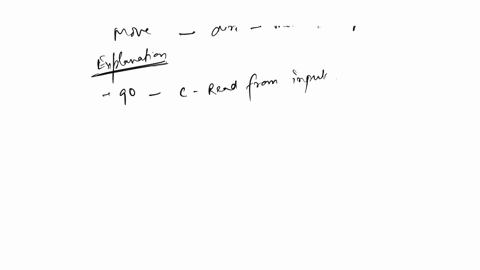 Move -
Explanation
→ q0 - c - Read from input.